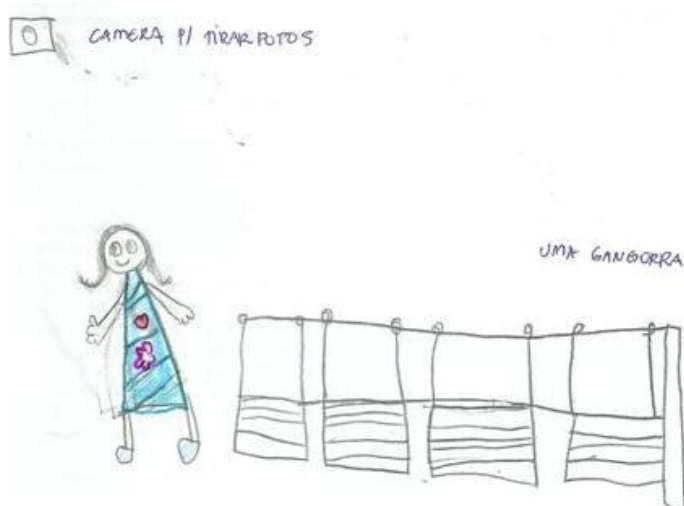 CAMERA P/ TIRAR FOTOS
UMA GANGORRA